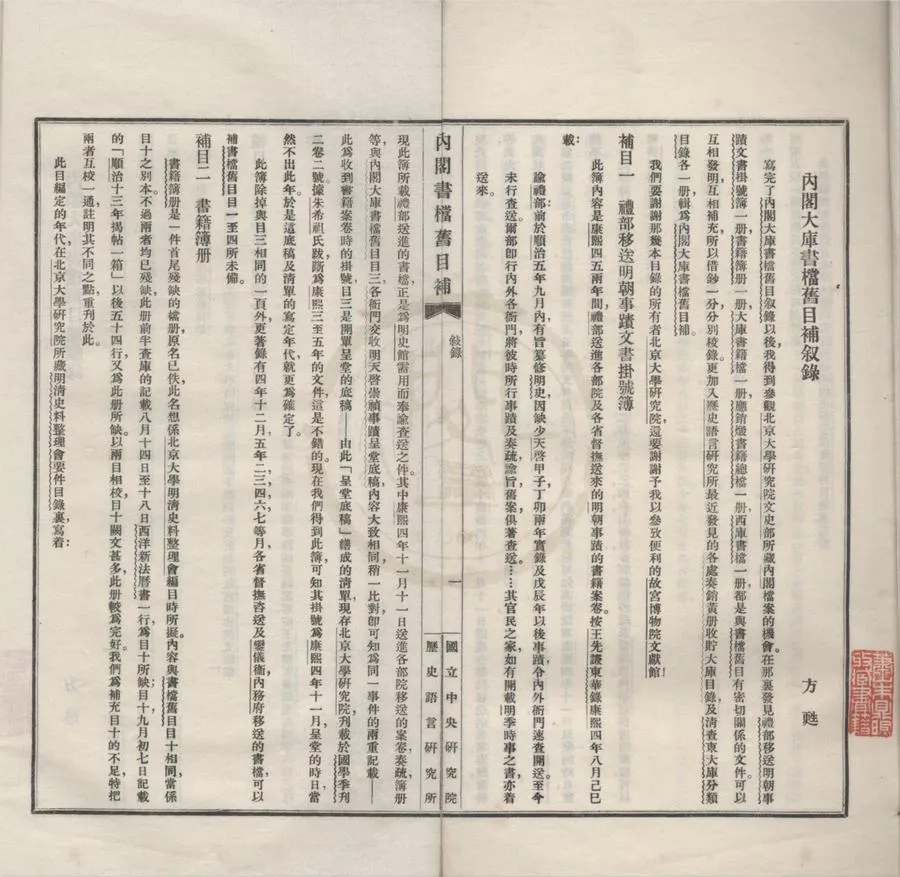 內閣大庫書檔舊目補敘錄
方甦
寫完了內閣大庫書檔舊目敘錄以後，我得到參觀北京大學研究院文史部所藏內閣檔案的機會。在那裏發見禮部移送明朝事
蹟文書掛號簿一册，書籍簿册一册，大庫書籍檔一册，應銷燬書籍總檔一册，西庫書檔一册，都是與書檔舊目有密切關係的文件。可以
互相發明，互相補充，所以借鈔一分，分別校錄。更加入歷史語言研究所最近發見的各處奏銷黃册收貯大庫目錄，及清查東大庫分類
目錄各一册，輯爲內閣大庫書檔舊目補。
我們要謝謝那幾本目錄的所有者北京大學研究院，還要謝謝予我以參攷便利的故宮博物院文獻館！
補目一　禮部移送明朝事蹟文書掛號簿
此簿內容是康熙四五兩年間，禮部送進各部院及各省督撫送來的明朝事蹟的書籍案卷。按王先謙東華錄康熙四年八月己巳
載：
諭禮部：前於順治五年九月內，有旨纂修明史，因缺少天啓甲子丁卯兩年實錄，及戊辰年以後事蹟，令內外衙門速查開送，至今
未行查送。爾部卽行內外各衙門，將彼時所行事蹟及奏疏，諭旨舊案，俱著查送。……其官民之家，如有開載明季時事之書，亦着
送來。
內閣書檔舊目補
敍錄
一
國立中央研究院
歷史語言研究所
現此簿所載禮部送進的書檔，正是爲明史館需用而奉諭查送之件。其中康熙四年十一月十一日送進各部院移送的案卷，奏疏，簿册
等，與內閣大庫書檔舊目目三各衙門交收明天啓崇禎事蹟呈堂底稿，內容大致相同，稍一比對，卽可知爲同一事件的兩重記載——
此爲收到書籍案卷時的掛號，目三是開單呈堂的底稿——由此「呈堂底稿」繕成的清單，現存北京大學研究院，刊載於國學季刊
二卷二號，據朱希祖氏跋，斷爲康熙三至五年的文件，這是不錯的。現在我們得到此簿，可知其掛號爲康熙四年十一月，呈堂的時日，當
然不出此年。於是這底稿及清單的寫定年代，就更爲確定了。
此簿除掉與目三相同的一頁外，更著錄有四年十二月，五年二，三，四，六，七等月各省督撫咨送及鑾儀衞，內務府移送的書檔，可以
補書檔舊目目一至四所未備。
補目二　書籍簿册
書籍簿册是一件首尾殘缺的檔册，原名已佚，此名想係北京大學明清史料整理會編目時所擬。內容與書檔舊目目十相同，當係
目十之別本。不過兩者均已殘缺，此册前半查庫的記載，八月十四日至十八日西洋新法曆書一行，爲目十所缺；目十九月初七日記載
的「順治十三年揭帖一箱」以後五十四行，又爲此册所缺。以兩目相校，目十闕文甚多，此册較爲完好。我們爲補充目十的不足，特把
兩者互校一通，註明其不同之點，重刊於此。
此目編定的年代，在北京大學研究院所藏明清史料整理會要件目錄裏寫着：